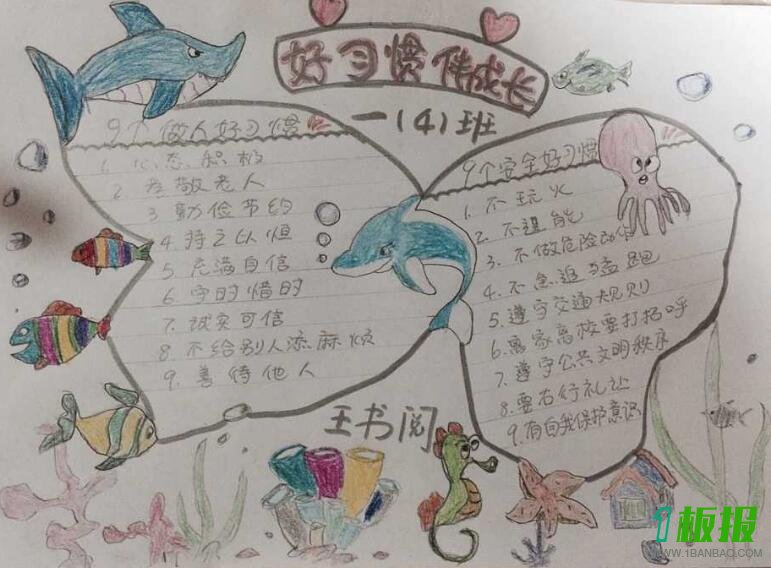 好习惯伴成长
一(4)班
9个做人好习惯
1. 心态积极
2. 孝敬老人
3 勤俭节约
4. 持之以恒
5 充满自信
6 守时惜时
7. 诚实可信
8. 不给别人添麻烦
9. 善待他人
9个安全好习惯
1. 不玩火
2. 不逞能
3. 不做危险动作
4. 不急追猛跑
5. 遵守交通规则
6. 离家离校要打招呼
7. 遵守公共文明秩序
8. 要右行礼让
9. 有自我保护意识
王书阅
1板报
WWW.1BANBAO.COM